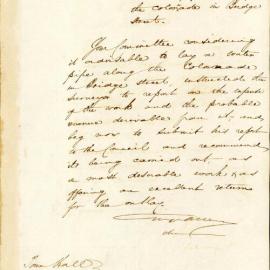 the colonade in Bridge
Street.
The Committee considering
it advisable to lay a water
pipe along the Colonnade
in Bridge Street, instructed the
Surveyor to report on the
of the work and the probable
revenue derivable from it, and
beg now to submit his report
to the Council and recommend
its being carried out as
a most desirable work as
offering an excellent return
for the outlay.
Town Hall